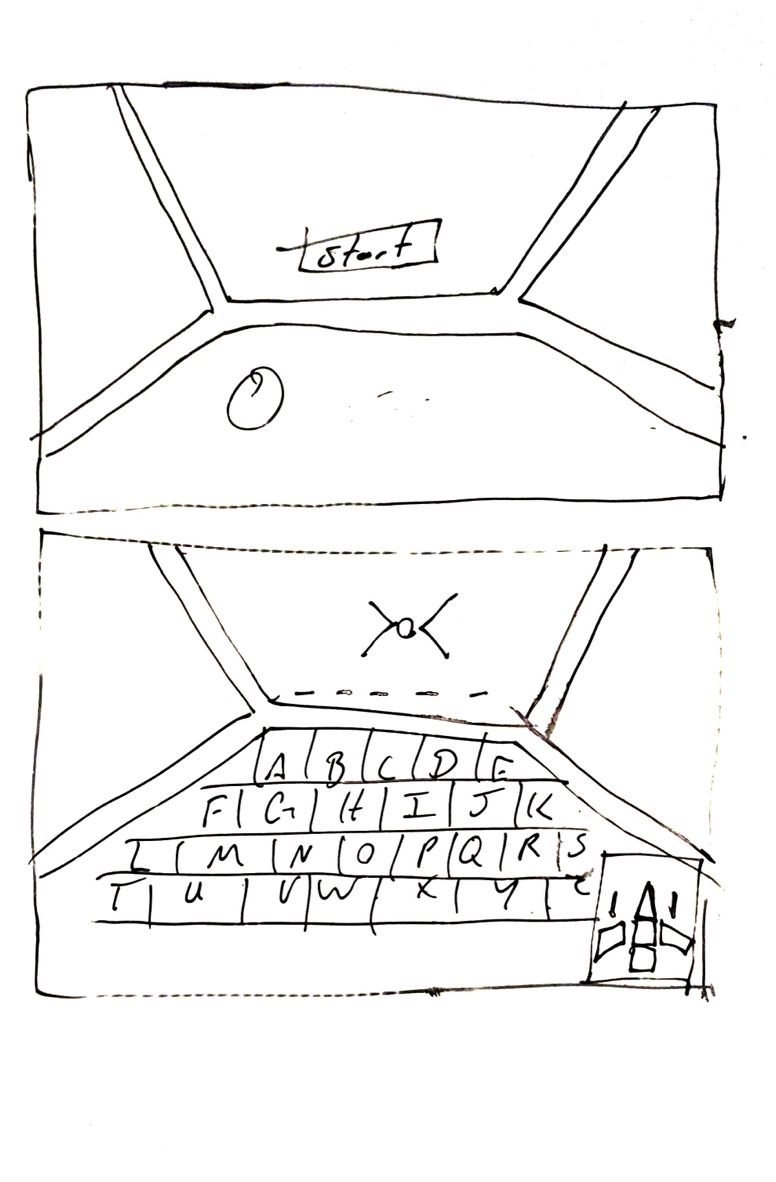 Start
A B C D E
F G H I J K
L M N O P Q R S
T U V W X Y Z